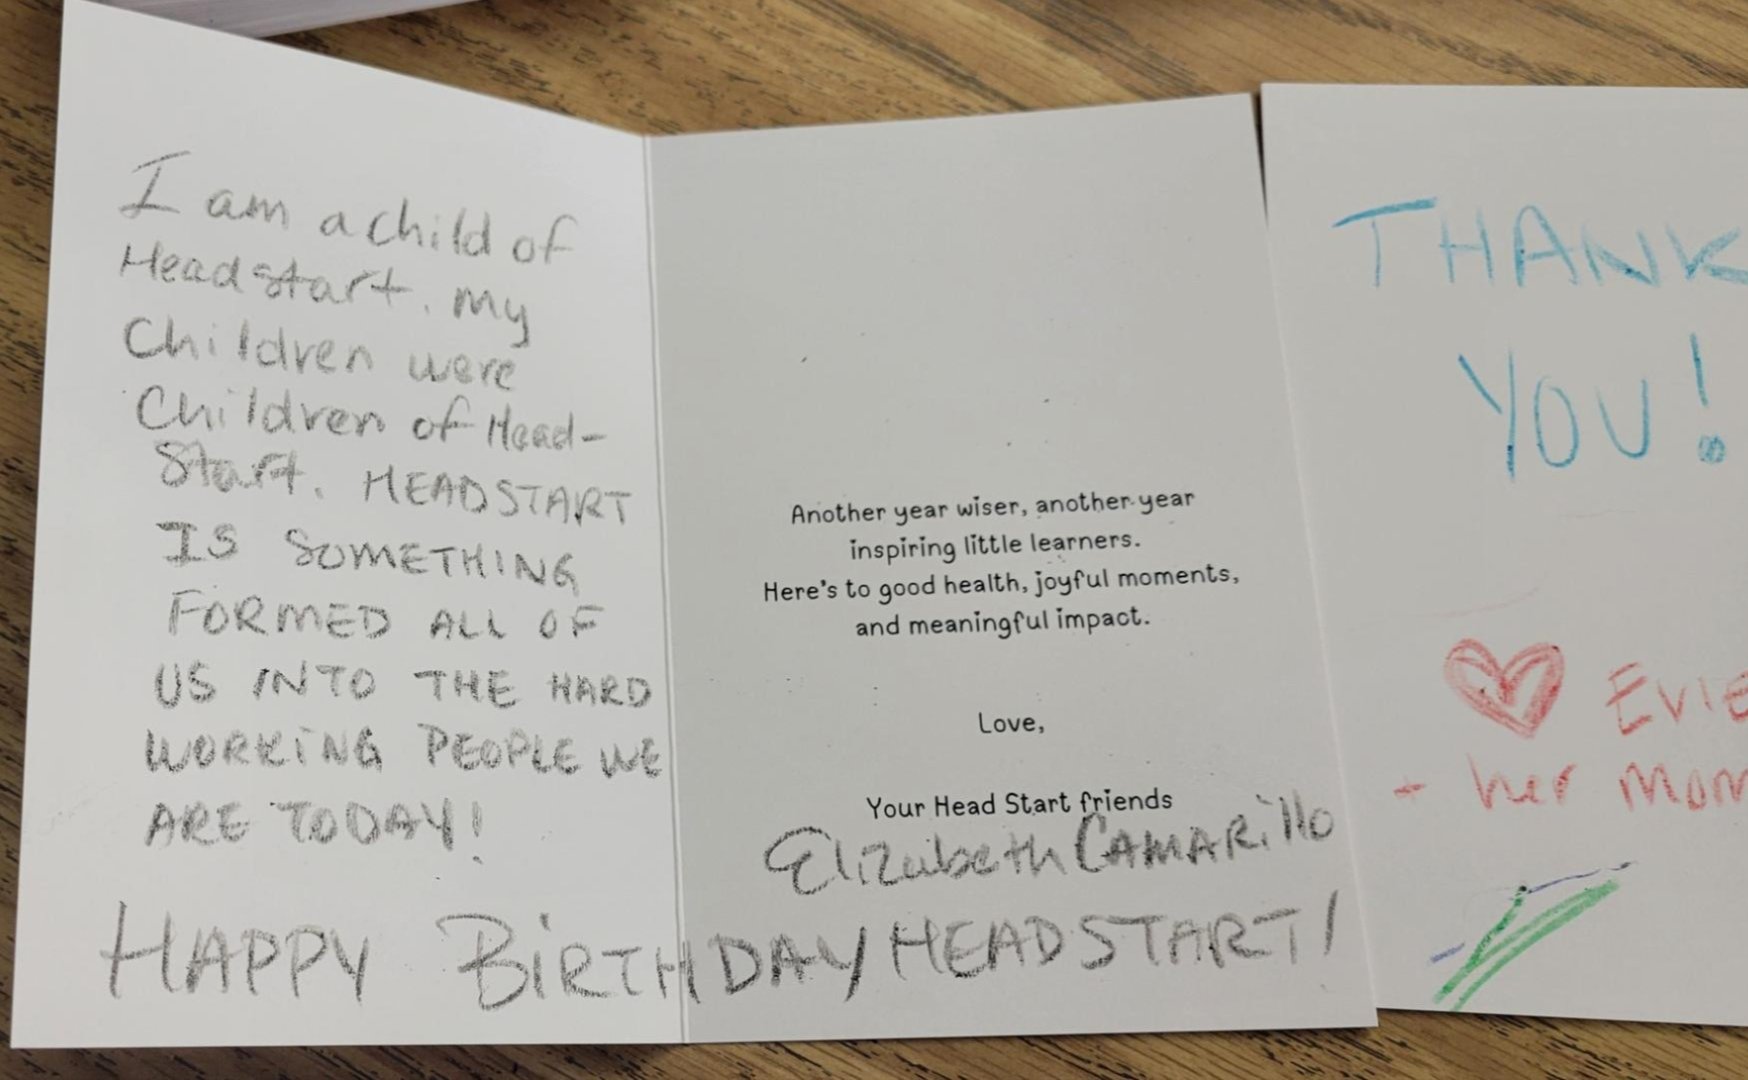 I am a child of
Headstart. My
Children were
Children of Head-
Start. HEADSTART
IS SOMETHING
FORMED ALL OF
US INTO THE HARD
WORKING PEOPLE WE
ARE TODAY!
HAPPY BIRTHDAY HEADSTART!
Another year wiser, another year
inspiring little learners.
Here's to good health, joyful moments,
and meaningful impact.
Love,
Your Head Start friends
Elizabeth CAMARillo
THANK
YOU!
EVIE
+ her mom